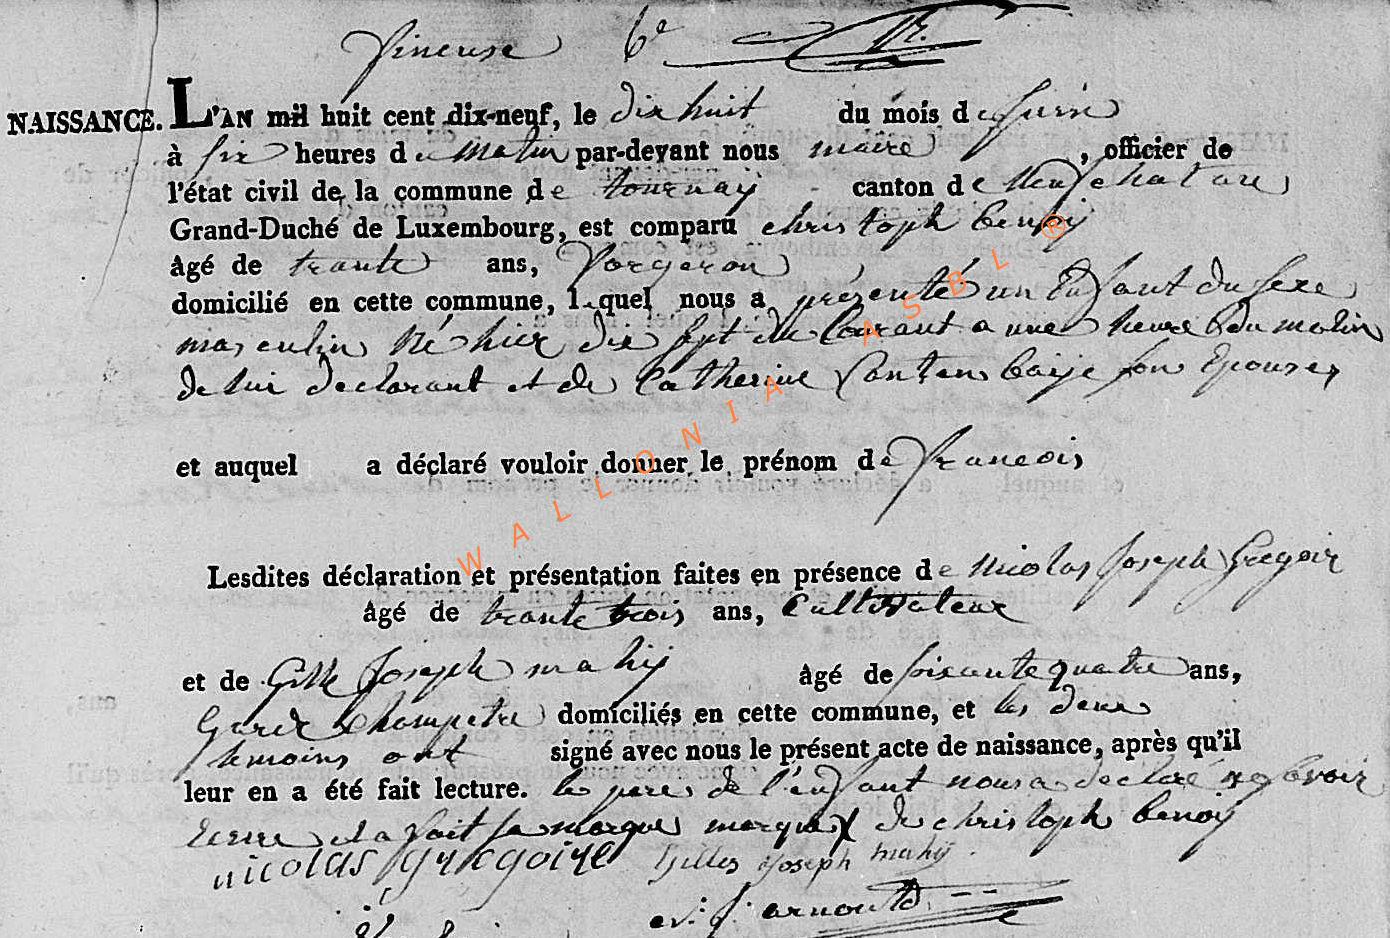 fineuse 6e
NAISSANCE. L'AN mil huit cent dix-neuf, le dix huit du mois de juin
à six heures de matin par-devant nous maire, officier de
l'état civil de la commune de tournay canton de Neufchatau
Grand-Duché de Luxembourg, est comparu christoph benoij
âgé de trante ans, vorgeron
domicilié en cette commune, lequel nous a présenté un Enfant du sexe
masculin Né hier dix sept du Courant a une heure du matin
de lui declarant et de Catherine son Epouse
et auquel a déclaré vouloir donner le prénom de francois
Lesdites déclaration et présentation faites en présence de Nicolas Joseph Gregoir
âgé de trante trois ans, Cultivateur
et de Gille Joseph mahij âgé de soixante quatre ans,
Garde Champetre domiciliés en cette commune, et les deux
temoins ont signé avec nous le présent acte de naissance, après qu'il
leur en a été fait lecture. le pere de l'enfant nous a declaré
et a fait sa marque marque X de christoph benoij
nicolas grégoire Gilles Joseph mahij
arnould
WALLONIA ASBL ®